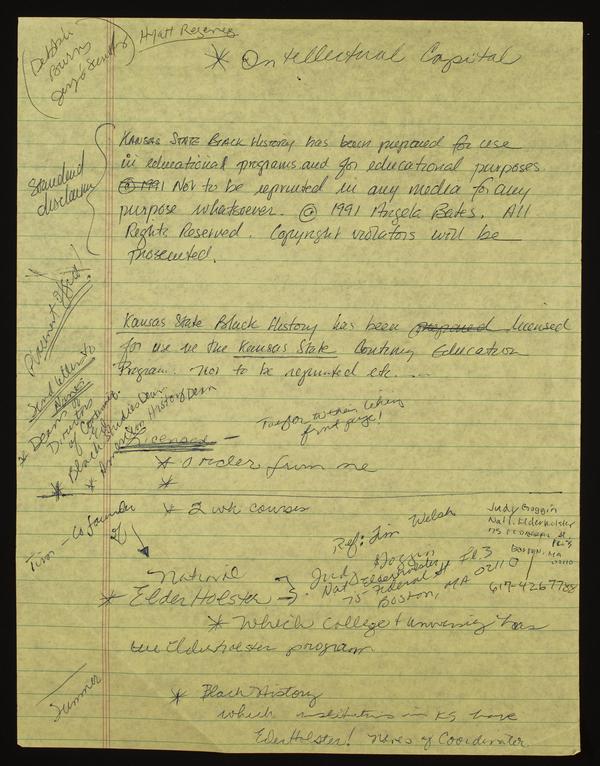 Hyatt Regency
Debbah
Burns
* Intellectual Capital
Kansas State Black History has been prepared for use
in educational programs and for educational purposes
© 1991 Not to be reprinted in any media for any
purpose whatsoever. © 1991 Angela Bates. All
Rights Reserved. Copyright violators will be
prosecuted.
Standard
disclaimer
Placement Office!
Kansas State Black History has been prepared licensed
for use in the Kansas State Contin Education
Program. Not to be reprinted etc. ...
Send letters to
Names
* Deans of
Directors
of Continue.
Ed.
* Black Studies Dean
* History Dean
front page!
Licensed —
* order from me
*
* 2 wk courses
Tim - Co founder
of
Ref: Jim Welsh
Judy Goggin
Nat'l. Elderholster
75 Federal St.
Fl. 3
Boston, MA
02110
617-4267788
National
* ElderHolster
Judy Goggin
Nat'l Elderholster Fl 3
75 Federal St
Boston, MA 02110
* Which College & University has
an Elderholster program
Summer
* Black History
which institutions in KS have
ElderHolster! Names of Coordinator